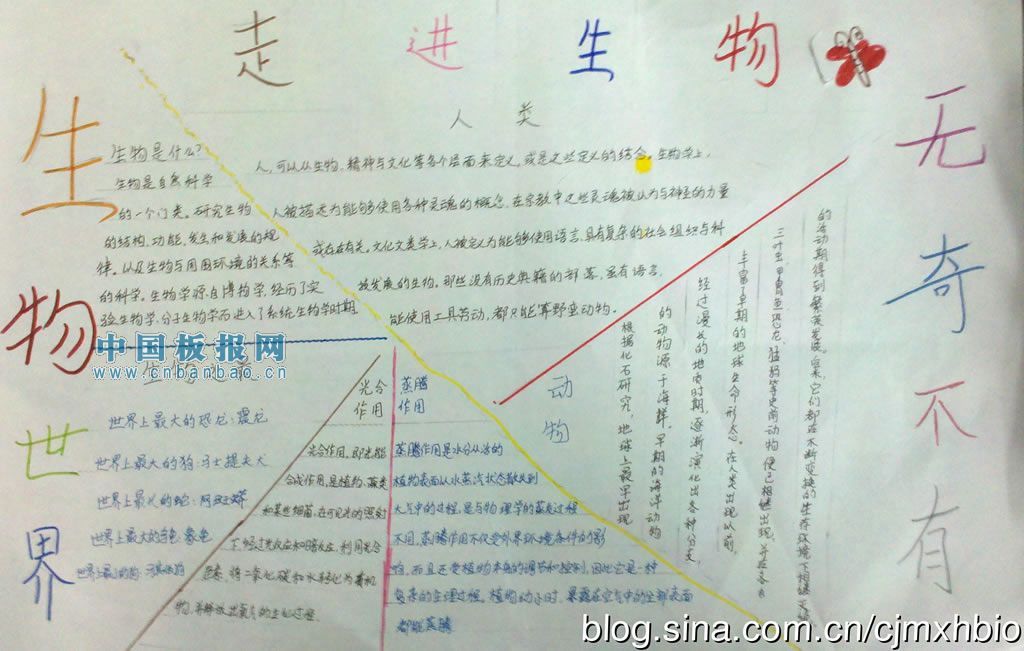 走进生物
生物世界
无奇不有
人类
人,可以从生物、精神与文化等各个层面来定义,或是这些定义的结合。生物学上,
人被描述为能够使用各种灵魂的概念,在宗教中这些灵魂被认为与神圣的力量
或存在有关。文化人类学上,人被定义为能够使用语言、具有复杂的社会组织与科
技发展的生物。那些没有历史典籍的部落,虽有语言,
能使用工具劳动,都只能算野蛮动物。
生物是什么?
生物是自然科学
的一个门类。研究生物
的结构、功能、发生和发展的规
律。以及生物与周围环境的关系等
的科学。生物学源自博物学,经历了实
验生物学、分子生物学而进入了系统生物学时期
中国板报网
www.cnbanbao.cn
生物之最
世界上最大的恐龙:震龙
世界上最大的狗:马士提夫犬
世界上最大的龟:象龟
光合
作用
光合作用,即光能
合成作用,是植物、藻类
和某些细菌,在可见光的照射
下,经过光反应和暗反应,利用光合
色素,将二氧化碳和水转化为有机
物,并释放出氧气的生化过程
蒸腾
作用
蒸腾作用是水分从活的
植物表面以水蒸汽状态散失到
大气中的过程,是与物理学的蒸发过程
不同,蒸腾作用不仅受外界环境条件的影
响,而且还受植物本身的调节和控制,因此它是一种
复杂的生理过程。植物幼小时,暴露在空气中的全部表面
都能蒸腾
动物
根据化石研究,地球上最早出现
的动物源于海洋。早期的海洋动物
经过漫长的地质时期,逐渐演化出各种分支,
丰富了早期的地球生命形态。在人类出现以前,
三叶虫、甲胄鱼、恐龙、猛犸等史前动物便已相继出现,并在各自
的活动期得到繁荣发展。后来,它们都在不断变换的生存环境下相继灭绝
blog.sina.com.cn/cjmxhbio